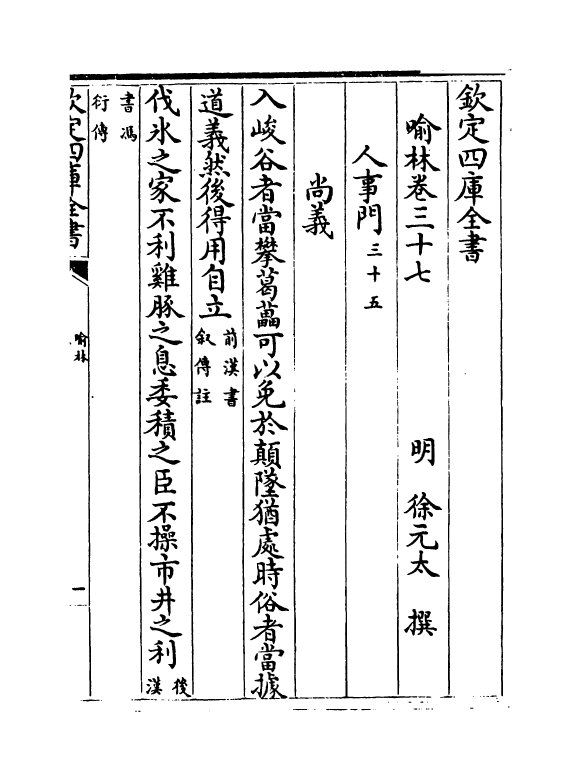 欽定四庫全書
喻林卷三十七　明　徐元太　撰
人事門三十五
尚義
入峻谷者當攀葛藟可以免於顛墜猶處時俗者當據
道義然後得用自立前漢書叙傳註
伐氷之家不利雞豚之息委積之臣不操市井之利後漢
書馮衍傳
欽定四庫全書
喻林
一